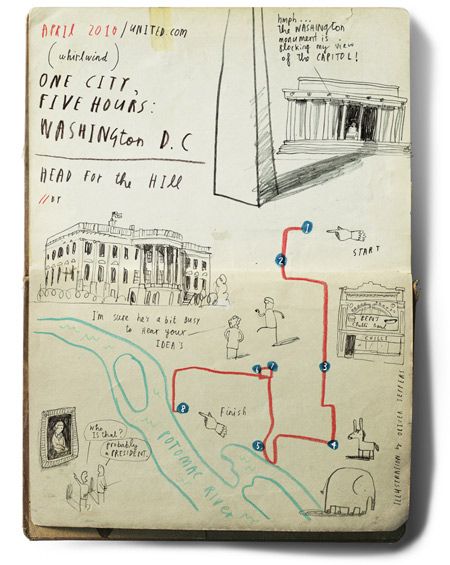 APRIL 2010/UNITED.COM
(whirlwind)
ONE CITY,
FIVE HOURS:
WASHINGton D.C
HEAD FOR the HILL
//BY
hmph...
the WASHINGTON
monument is
blocking my view
of the CAPITOL!
1
START
2
I'm sure he's a bit BUSY
to HEAR your
IDEA'S
BEN'S
CHILI
3
6
7
8
Finish
5
4
who
IS that?
probably
a PRESIDENT.
POTOMAC RIVER
ILLUSTRATION by OLIVER JEFFERS